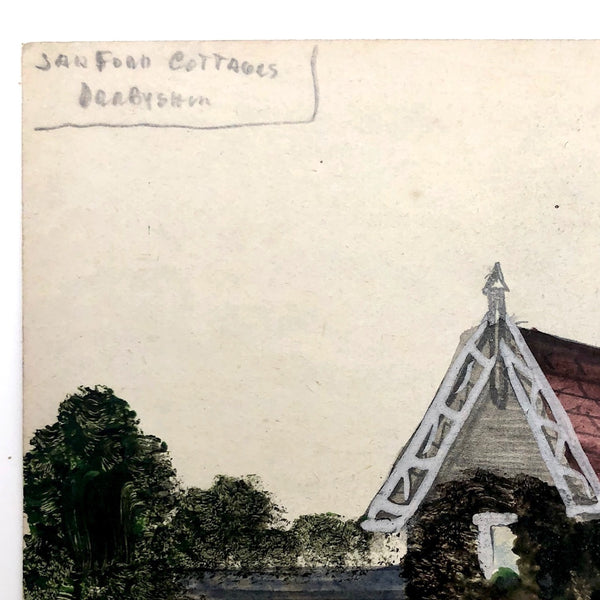 SANFORD COTTAGES
DERBYSHIR